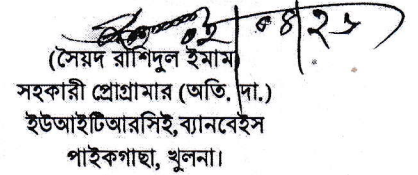 (সৈয়দ রাশিদুল ইমাম)
সহকারী প্রোগ্রামার (অতি. দা.)
ইউআইটিআরসিই,ব্যানবেইস
পাইকগাছা, খুলনা।